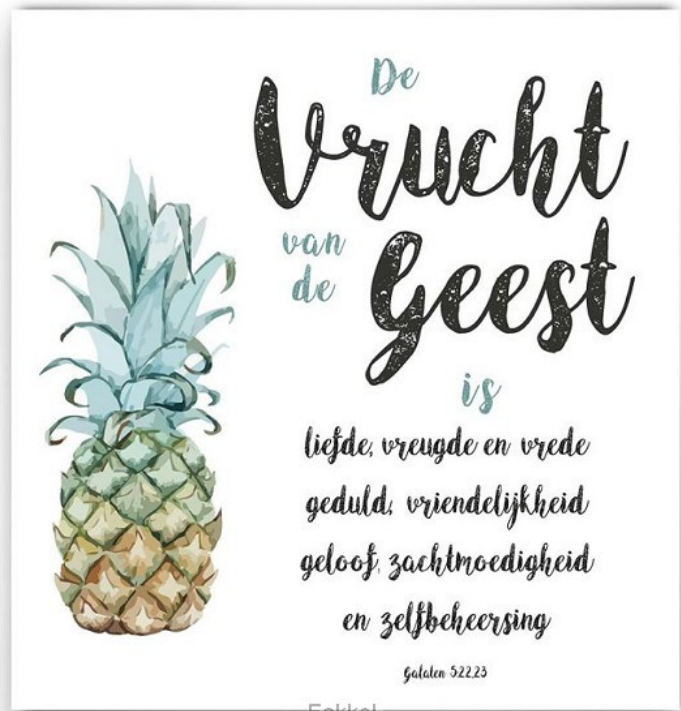 De
Vrucht
van
de
Geest
is
liefde, vreugde en vrede
geduld, vriendelijkheid
geloof, zachtmoedigheid
en zelfbeheersing
Galaten 5:22,23